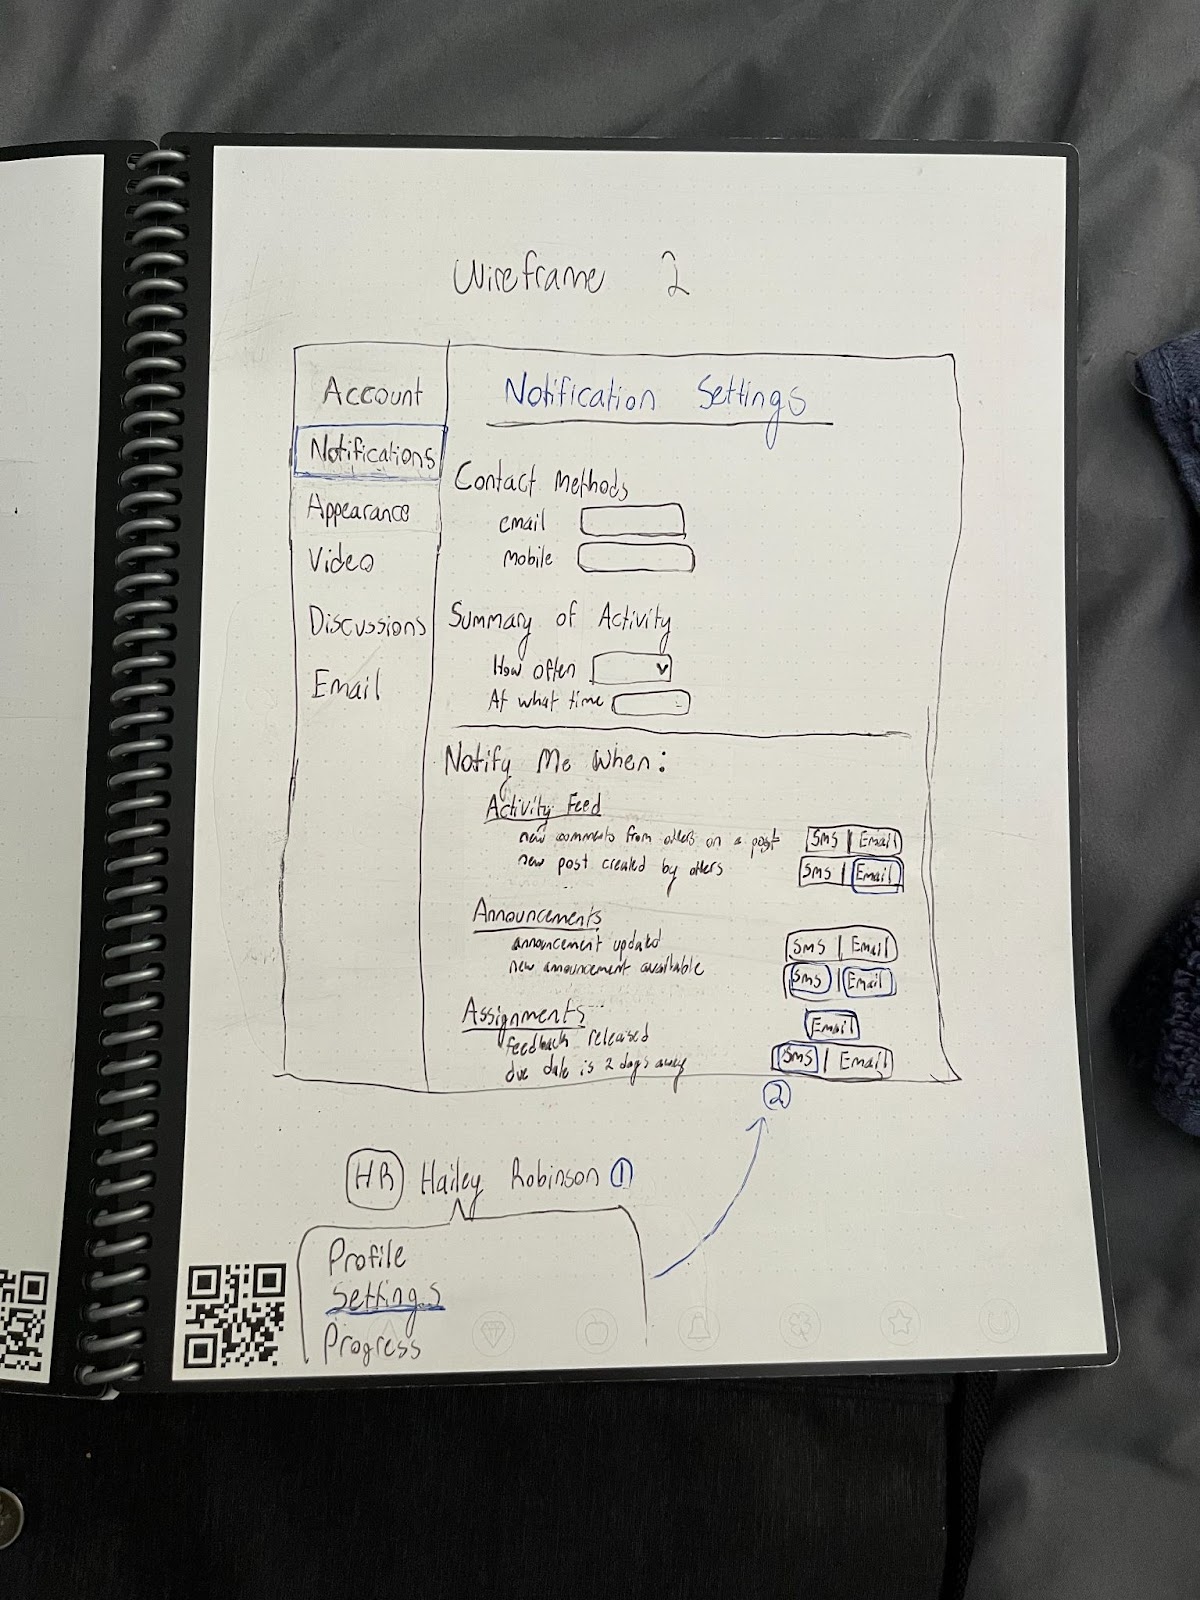 Wireframe 2
Account
Notifications
Appearance
Video
Discussions
Email
Notification Settings
Contact Methods
email
mobile
Summary of Activity
How often
At what time
Notify Me When:
Activity Feed
new comments from others on a post SMS | Email
new post created by others SMS | Email
Announcements
announcement updated SMS | Email
new announcement available SMS | Email
Assignments
feedback released Email
due date is 2 days away SMS | Email
2
HR Hailey Robinson 1
Profile
Settings
Progress